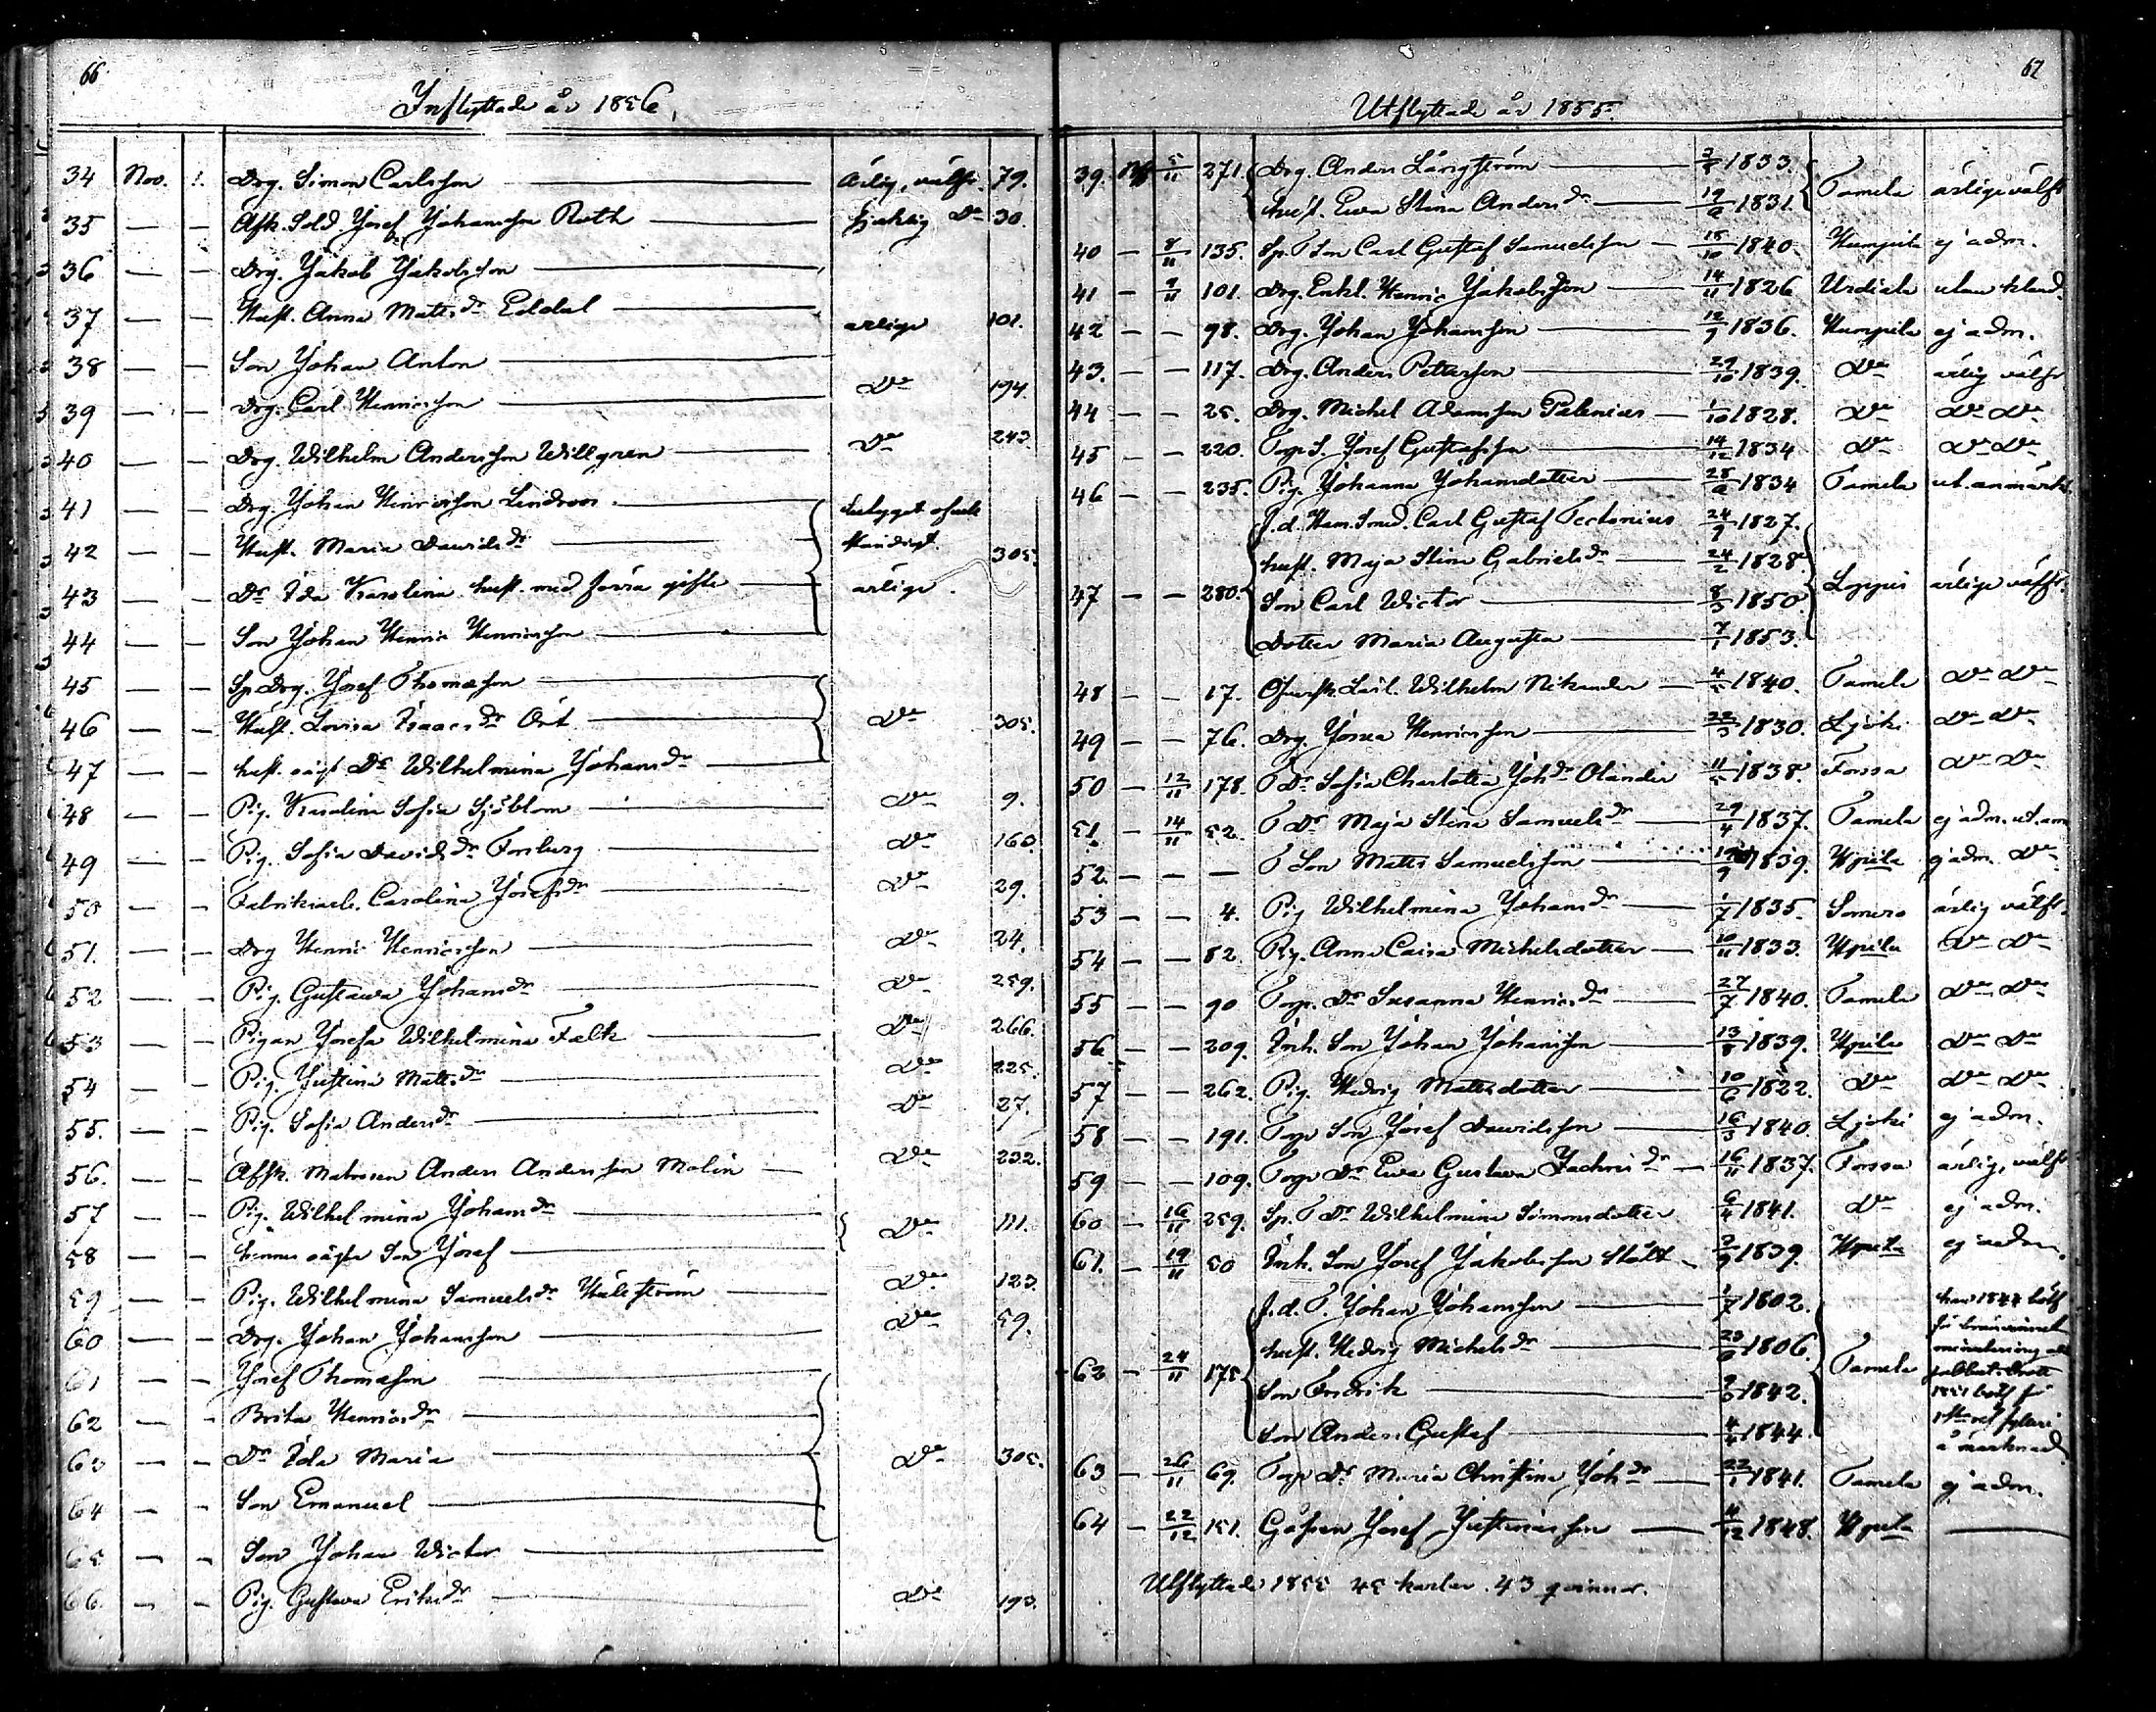 66
Inflyttade år 1856,
34 Nov. 1. Drg. Simon Carlsson Ärlig, välfr. 79.
35 — — Afsk. Sold Josef Johansson Roth Do 30.
36 — — Drg. Jakob Jakobsson
37 — — Hust. Anna Matts dr Eldal ärlige 101.
38 — — Son Johan Anton
39 — — Drg. Carl Henricsson Do 194.
40 — — Drg. Wilhelm Andersson Willgren Do 243.
41 — — Drg. Johan Henricsson Lindroos
42 — — Hust. Maria Davids dr 305.
43 — — Dr Ida Karolina hust. med förra gifte ärlige.
44 — — Son Johan Henric Henricsson
45 — — Sp. Drg. Josef Thomasson
46 — — Hust. Lovisa Isaacs dr Ört Do 305.
47 — — hust. oägt Dr Wilhelmina Johans dr
48 — — Pig. Karolina Sofia Sjöblom Do 9.
49 — — Pig. Sofia Davids dr Forsberg Do 160.
50 — — Fabriksarb. Carolina Josefs dr Do 29.
51. — — Drg Henric Henricsson Do 24.
52 — — Pig. Gustawa Johans dr Do 259.
53 — — Pigan Josefa Wilhelmina Falk Do 266.
54 — — Pig. Justina Matts dr Do 225.
55. — — Pig. Sofia Anders dr Do 27.
56. — — Afsk. Matrosen Anders Andersson Malin Do 232.
57 — — Pig. Wilhelmina Johans dr Do 111.
58 — — hennes oägta Son Josef
59 — — Pig. Wilhelmina Samuels dr Do 123
60 — — Drg. Johan Johansson Do 59.
61 — — Josef Thomasson
62 — — Brita Henrics dr
63 — — Dr Ida Maria Do 305.
64 — — Son Emanuel
65 — — Son Johan Wictor
66 — — Pig. Gustava Eriks dr Do 193.
67
Utflyttade år 1855.
39. 5/11 271. Drg. Anders Långström 1833. Tamela ärlige välfr
hust. Ewa Stina Anders dr 1831.
40 — 8/11 135. Sp. T Son Carl Gustaf Samuelsson 15/10 1840. Humpila ej adm.
41 — 9/11 101. Drg. Enkl. Henric Jakobsson 14/11 1826 Urdiala utan kland.
42 — — 98. Drg. Johan Johansson 12/9 1836. Humpila ej adm.
43. — — 117. Drg. Anders Pettersson 29/10 1839. Do ärlig välfr
44 — — 25. Drg. Michel Adamsson Palenius 1/10 1828. Do Do Do
45 — — 220. Torp. S. Josef Gustafsson 14/12 1834 Do Do Do
46 — — 235. Pig. Johanna Johansdotter 1834 Tamela ut. anmärkn.
f.d. Ham. Smed. Carl Gustaf Tectonius 24/9 1827.
hust. Maja Stina Gabriels dr 24/2 1828
47 — — 280. Son Carl Wictor 8/3 1850 Loppis ärlige välfr.
Dotter Maria Augusta 7/1 1853.
48 — — 17. Wilhelm Nikander 1840. Tamela Do Do
49 — — 76. Drg. Josua Henricsson 22/3 1830. Ljoki Do Do
50 — 12/11 178. T Dr Sofia Charlotta Joh dr Olander 1838. Forssa Do Do
51. — 14/11 52. T Dr Maja Stina Samuels dr 29/4 1837. Tamela ej adm. ut. anm
52. — — — T Son Matts Samuelsson 1839. Hpila ej adm. Do
53 — — 4. Pig Wilhelmina Johans dr 1/7 1835. Somero ärlig välfr.
54 — — 82. Pig. Anna Caisa Michelsdotter 10/11 1833. Hpila Do Do
55 — — 90 Torp. Dr Susanna Henrics dr 27/7 1840. Tamela Do Do
56 — — 209. Inh. Son Johan Johansson 13/8 1839. Hpila Do Do
57 — — 262. Pig. Hedvig Mattsdotter 10/6 1822. Do Do Do
58 — — 191. Torp Son Josef Davidsson 16/3 1840. Ljoki ej adm.
59 — — 109. Torp Dr Ewa Gustava Zachris dr 16/11 1837. Forssa ärlig, välfr
60 — 16/11 259. Sp. T Dr Wilhelmina Simonsdotter 6/4 1841. Do ej adm.
61. — 19/11 50 Inh. Son Josef Jakobsson Stolt 2/9 1839. Hpila ej adm.
f.d. T. Johan Johansson 1/7 1802.
hust. Hedvig Michels dr 23/6 1806.
62 — 24/11 175 Son Fredrik 1842. Tamela
Son Anders Gustaf 4/4 1844.
63 — 26/11 69. Torp Dr Maria Christina Joh dr 22/1 1841. Tamela ej adm.
64 — 22/12 151. Gossen Josef Justinasson 4/12 1848. Hpila
Utflyttade 1855 45 karlar. 43 qvinnor.